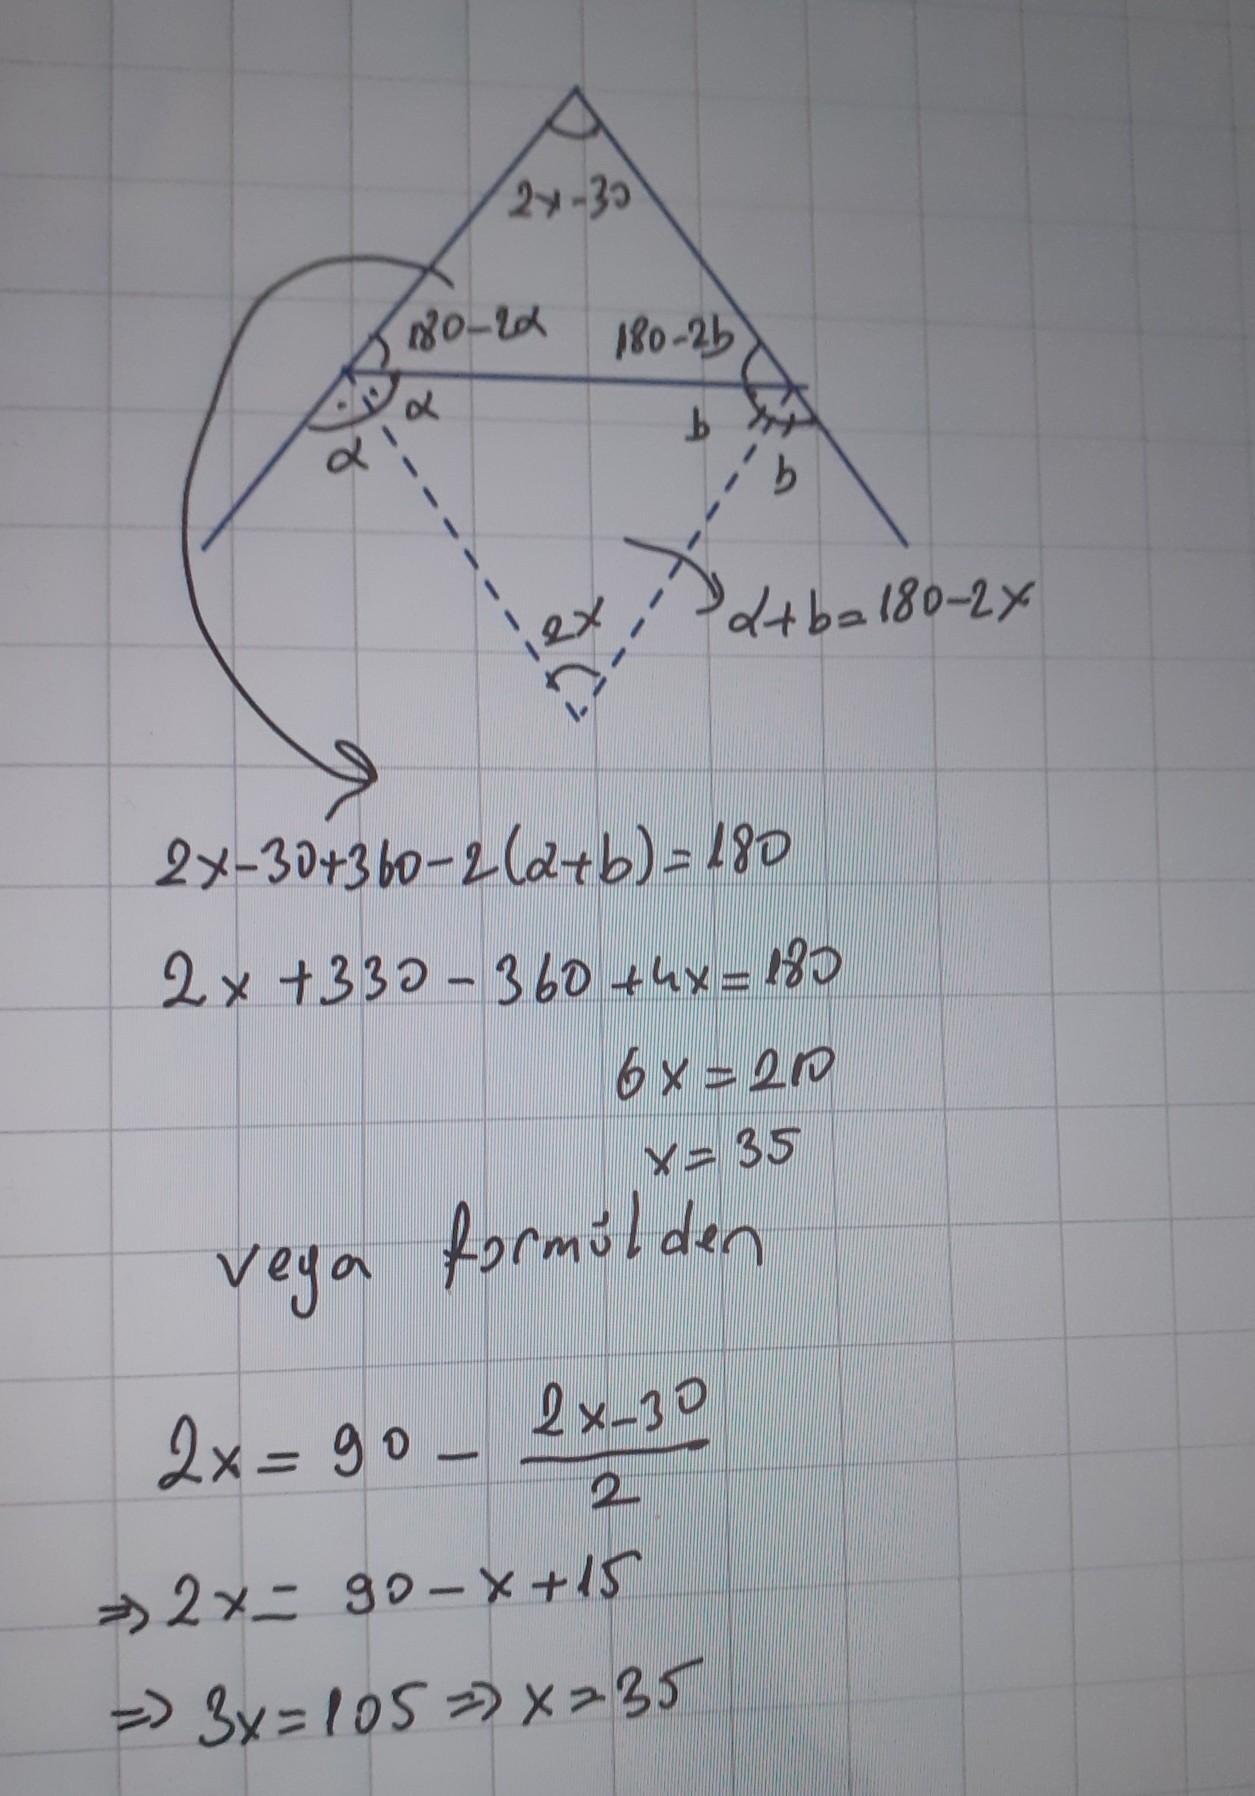 2x-30
180-2α
180-2b
α
b
α
b
2x
α+b=180-2x
2x-30+360-2(α+b)=180
2x+330-360+4x=180
6x=210
x=35
veya formülden
2x=90-\frac{2x-30}{2}
⇒2x=90-x+15
⇒3x=105⇒x=35